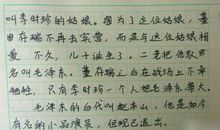 叫李时珍的姑娘。因为了这位姑娘,董
旦存瑞不再去炸雷,而是与这位姑娘相
爱,不久,儿十滋生了,二老把他取
名叫毛泽东。董存瑞之后在战场上不幸
牺牲,只有李时珍一个人把毛泽东养大。
毛泽东的后代叫赵本山,他是如今
有名的小品演员,但现已退出。